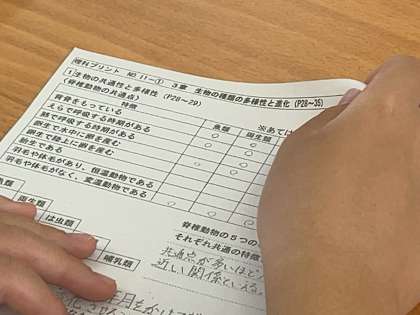 理科プリント NO.11-① 3章 生物の種類の多様性と進化 (P28~35)
1 生物の共通性と多様性 (P28~29)
(脊椎動物の共通点) ※あては
特徴 魚類 両生類
背骨をもっている ○ ○
えらで呼吸する時期がある ○ ○
肺で呼吸する時期がある ○
卵生で水中に卵を産む ○ ○
卵生で陸上に卵を産む
胎生である
羽毛や体毛があり、恒温動物である
羽毛や体毛がなく、変温動物である ○ ○
魚類
両生類
は虫類
哺乳類
脊椎動物の5つの
それぞれ共通の特徴
共通点が多いほど
近い関係といえる。